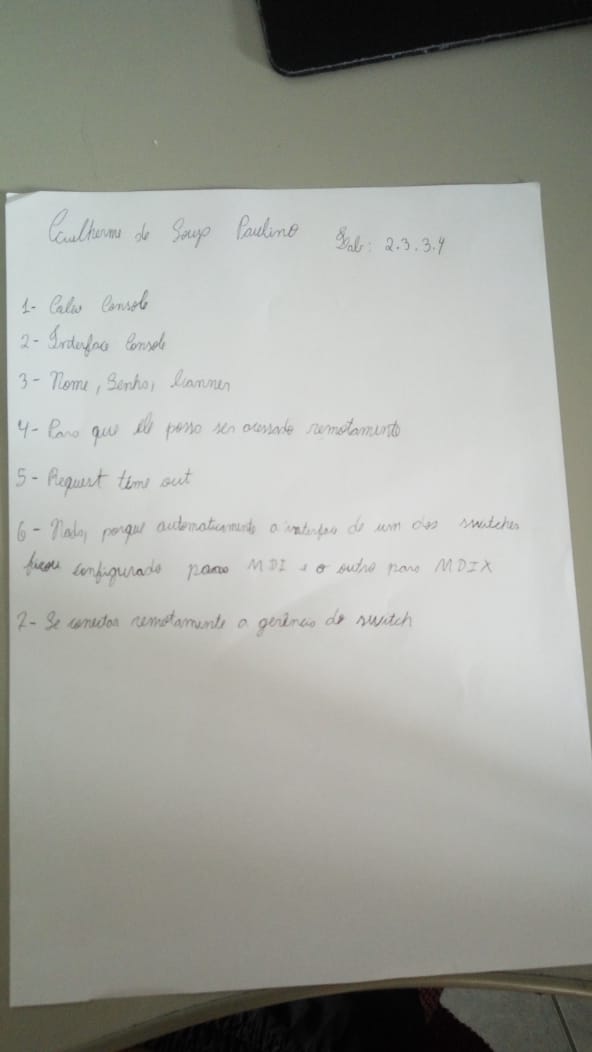 Guilherme de Souza Paulino Lab: 2.3.3.4
1- Cabo Console
2- Interface Console
3- Nome, Senha, banner
4- Para que ele possa ser acessado remotamente
5- Request time out
6- Nada, porque automaticamente a interface de um dos switches
ficou configurado para MDI e o outro para MDIX
7- Se conectar remotamente a gerência do switch